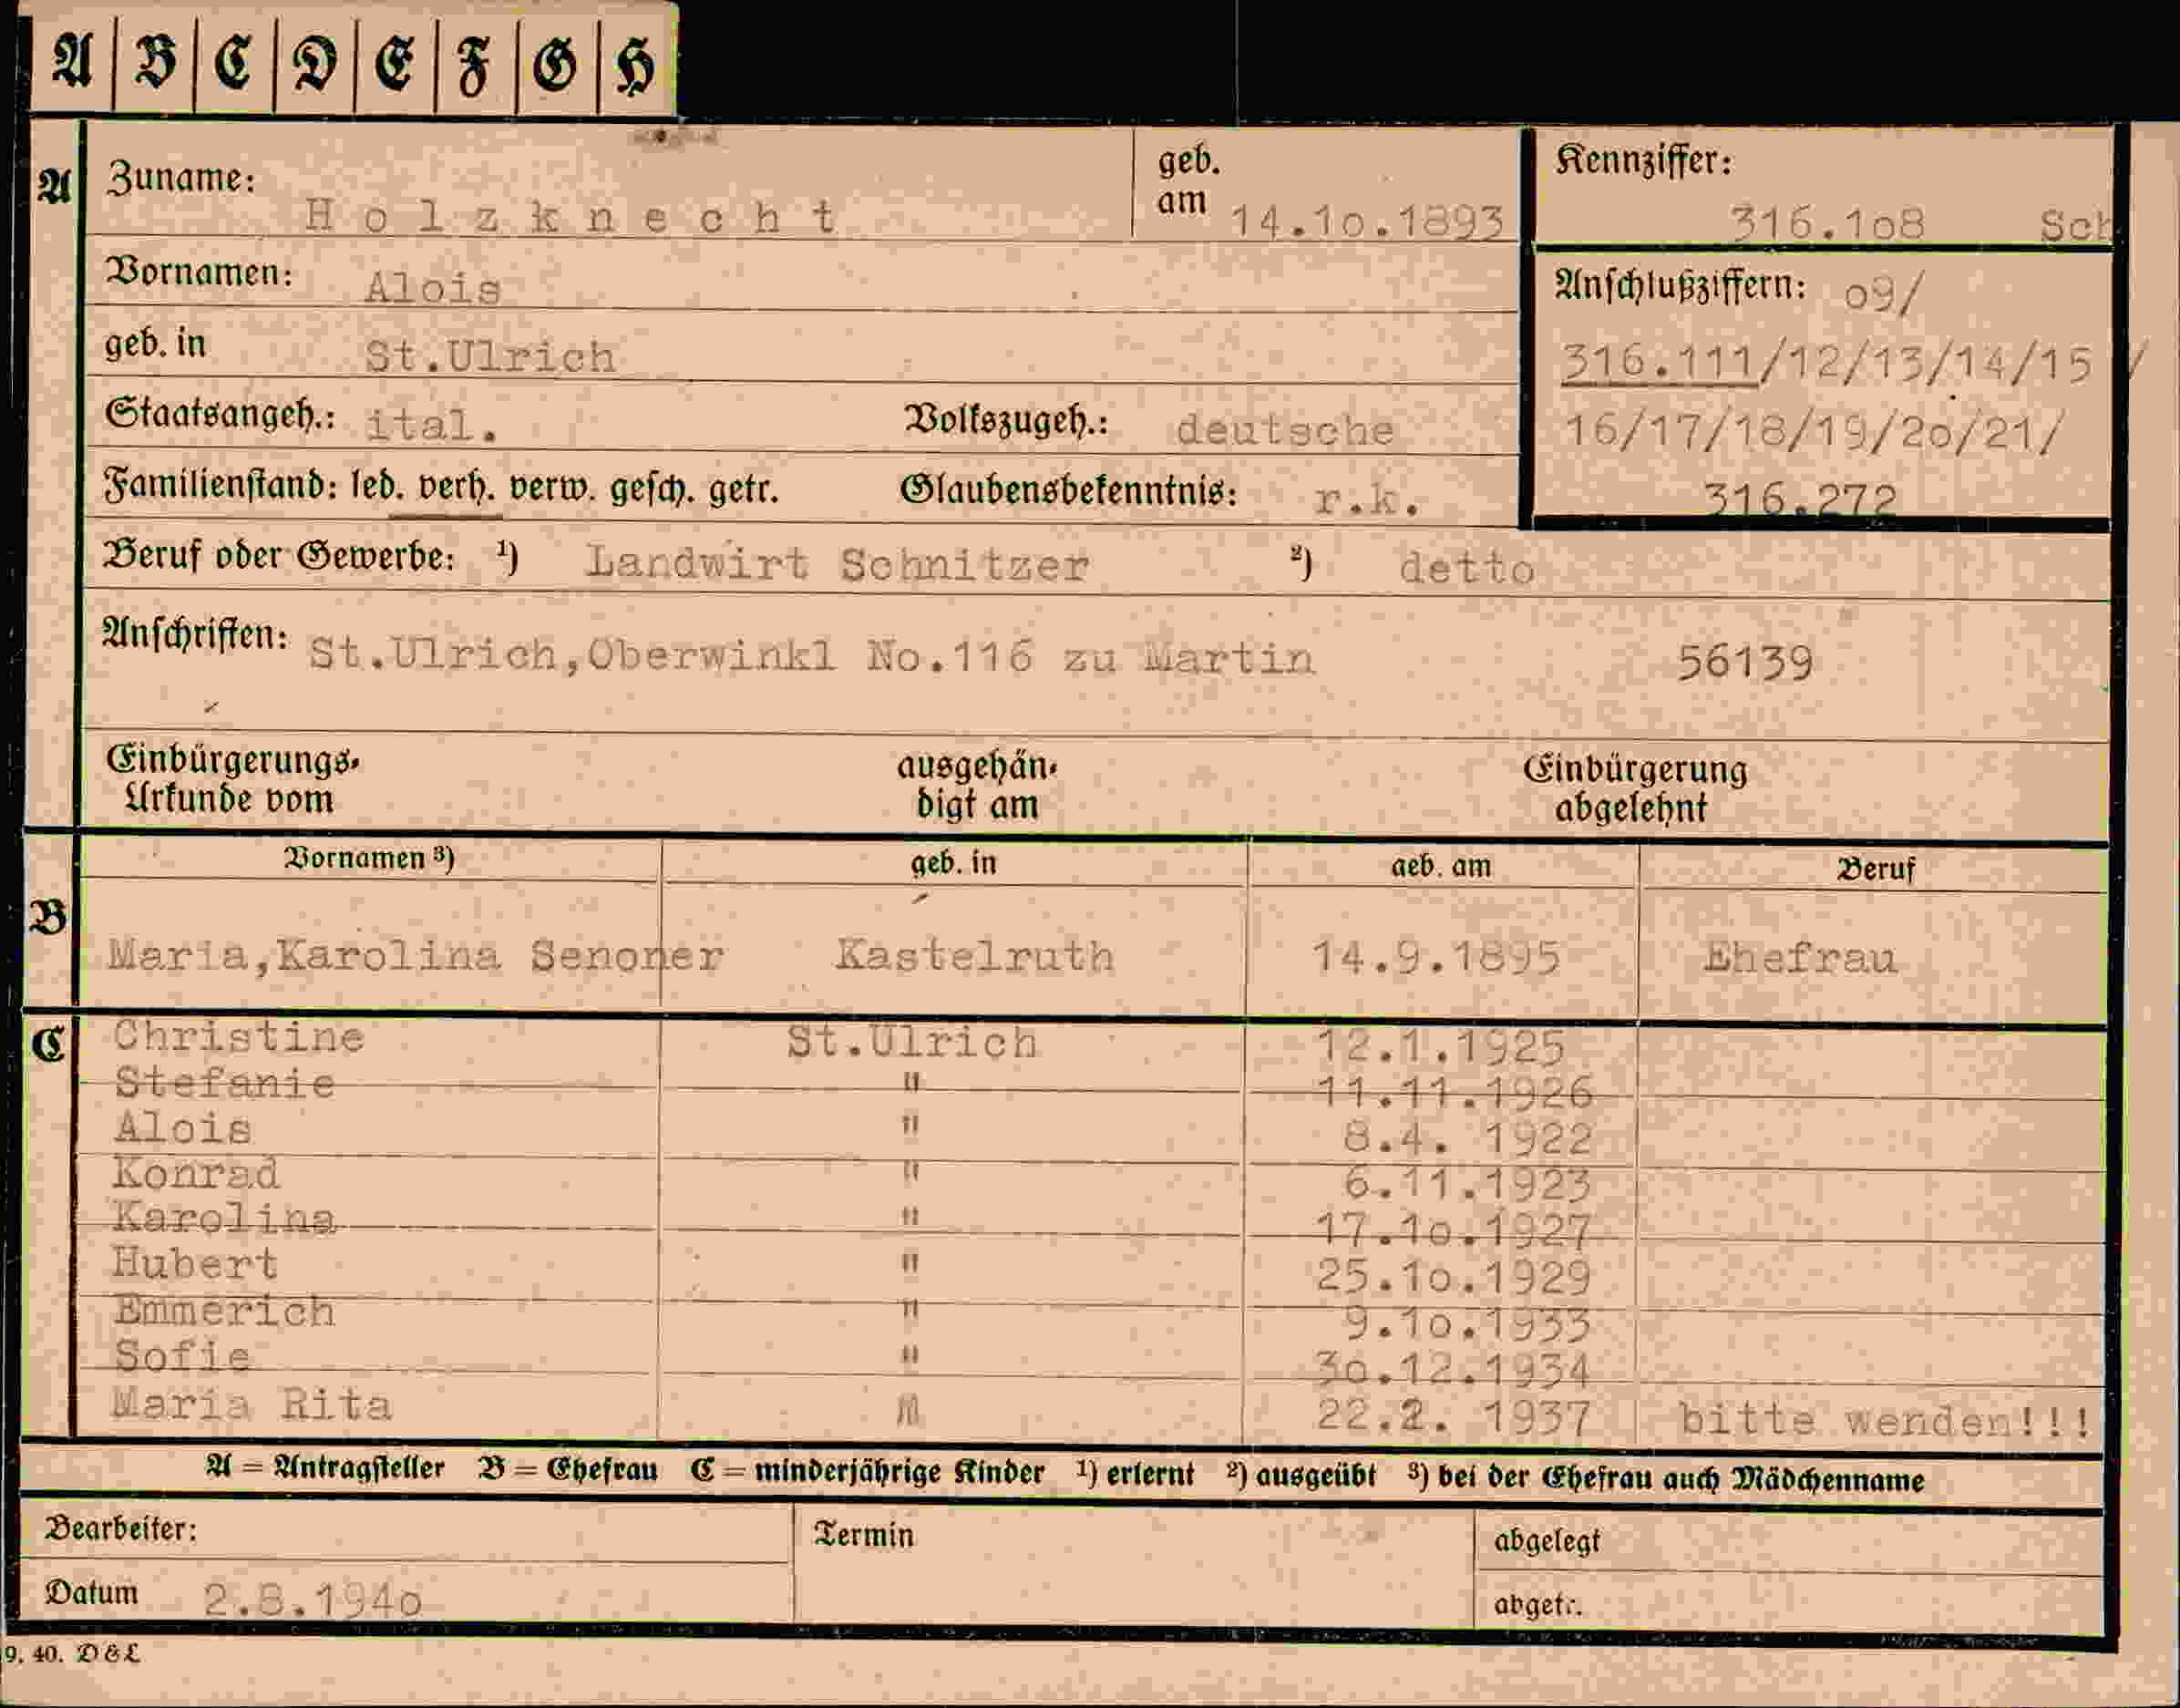 A B C D E F G H
A Zuname: Holzknecht geb. am 14.10.1893 Kennziffer: 316.108 Sch
Vornamen: Alois Anschlußziffern: 09/
geb. in St.Ulrich 316.111/12/13/14/15 /
Staatsangeh.: ital. Volkszugeh.: deutsche 16/17/18/19/20/21/
Familienstand: led. verh. verw. gesch. getr. Glaubensbekenntnis: r.k. 316.272
Beruf oder Gewerbe: ¹) Landwirt Schnitzer ²) detto
Anschriften: St.Ulrich,Oberwinkl No.116 zu Martin 56139
Einbürgerungs- ausgehän- Einbürgerung
Urkunde vom digt am abgelehnt
Vornamen ³) geb. in geb. am Beruf
B Maria,Karolina Senoner Kastelruth 14.9.1895 Ehefrau
C Christine St.Ulrich 12.1.1925
Stefanie " 11.11.1926
Alois " 8.4. 1922
Konrad " 6.11.1923
Karolina " 17.10.1927
Hubert " 25.10.1929
Emmerich " 9.10.1933
Sofie " 30.12.1934
Maria Rita " 22.2. 1937 bitte wenden!!!
A = Antragsteller B = Ehefrau C = minderjährige Kinder ¹) erlernt ²) ausgeübt ³) bei der Ehefrau auch Mädchenname
Bearbeiter: Termin abgelegt
Datum 2.8.1940 abgetr.
9. 40. D & L